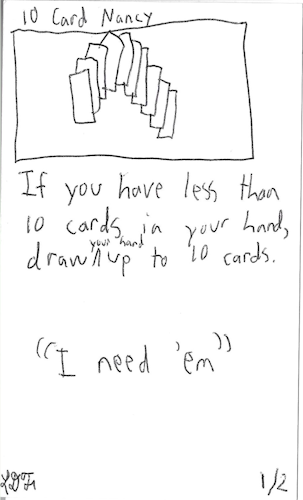 10 Card Nancy
If you have less than
10 cards in your hand,
draw your hand up to 10 cards.
"I need 'em"
1/2